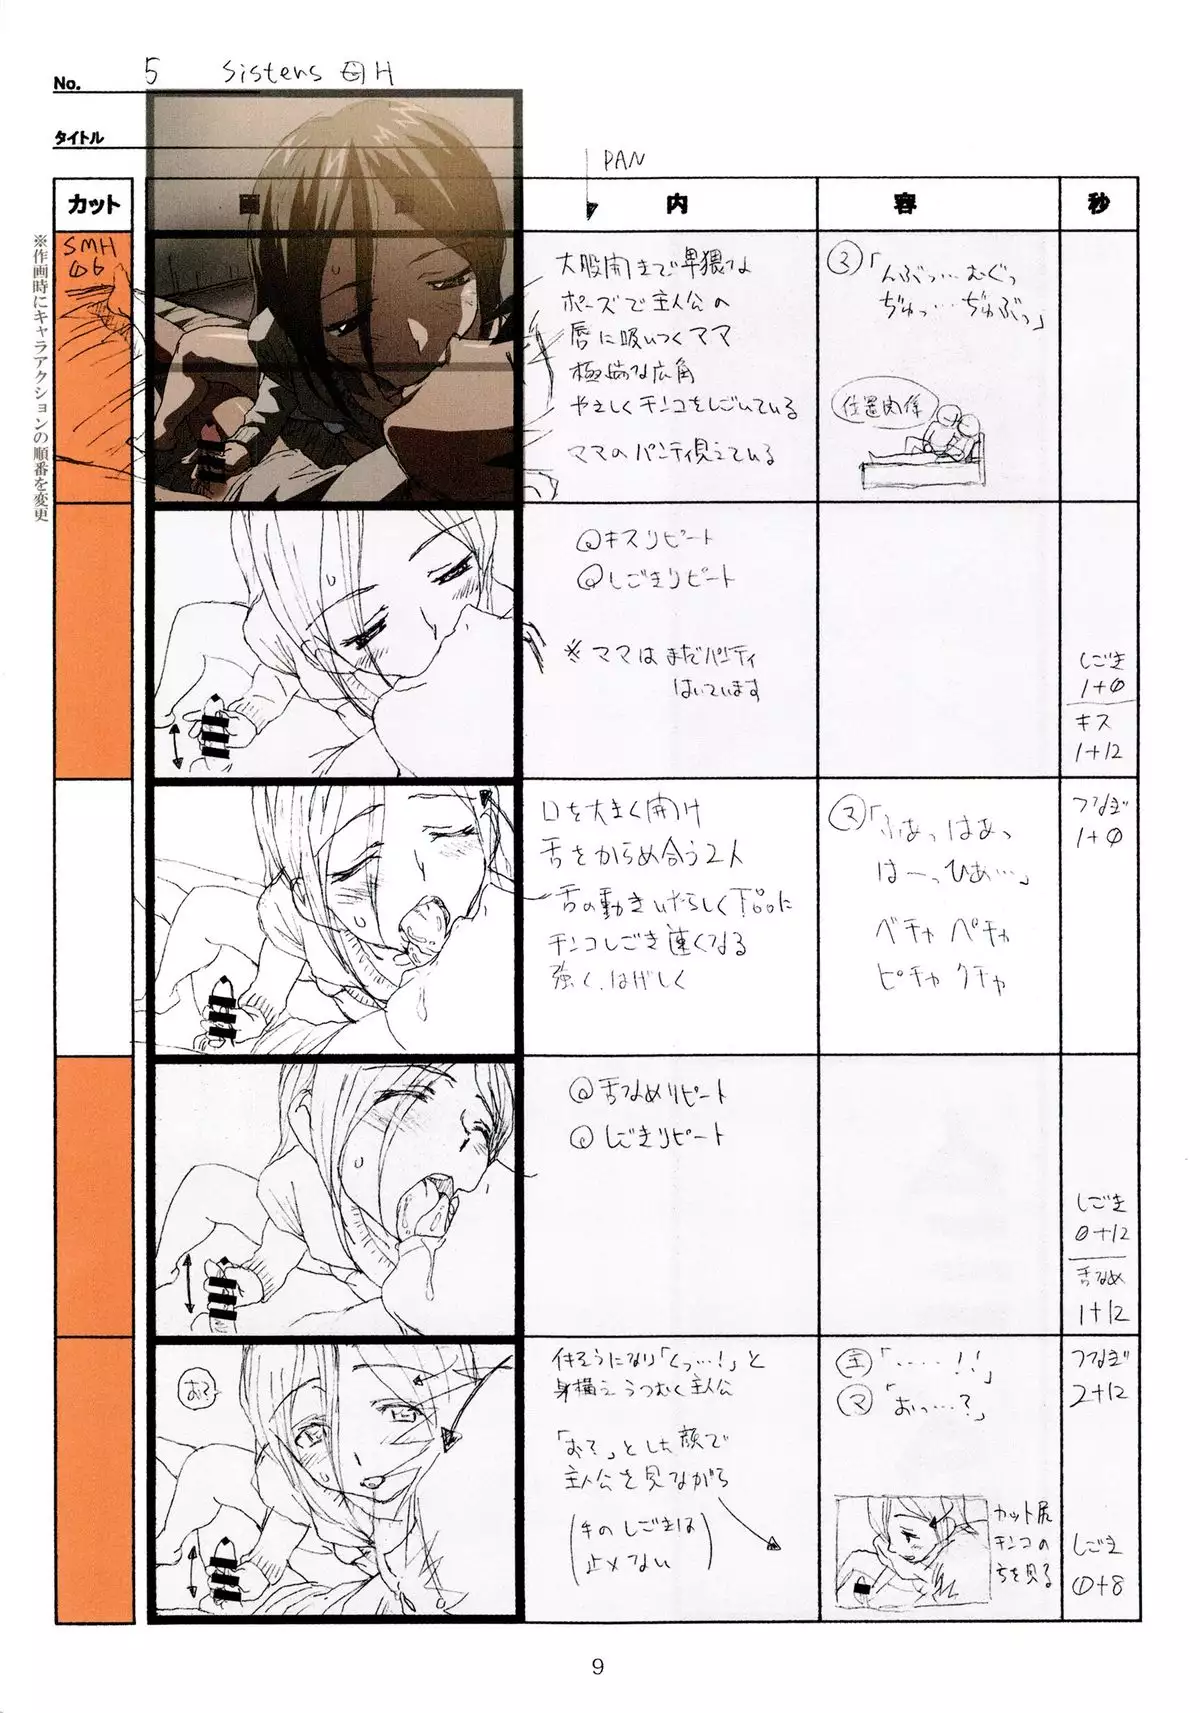 No. 5 Sisters 母H
タイトル
PAN
カット 画 面 内 容 秒
※作画時にキャラアクションの順番を変更
SMH
06
大股開きで卑猥な
ポーズで主人公の
唇に吸いつくママ
極端な広角
やさしくチンコをしごいている
ママのパンティ見えている
マ「んぶっ…むぐっ
ぢゅっ…ぢゅぶっ」
位置関係
キスリピート
しごきリピート
※ママはまだパンティ
はいています
しごき
1+0
キス
1+12
口を大きく開け
舌をからめ合う2人
舌の動きいやらしく
チンコしごき速くなる
強く、はげしく
マ「ふあっはあっ
はーっひあ…」
ベチャ ペチャ
ピチャ クチャ
つなぎ
1+0
舌なめリピート
しごきリピート
しごき
0+12
舌なめ
1+12
おっ
イキそうになり「くっ…!」と
身構え うつむく主人公
「おっ」とした顔で
主人公を見ながら
(手のしごきは
止メない)
主「‥‥!!」
マ「おっ…?」
カット尻
チンコの
方を見る
つなぎ
2+12
しごき
0+8
9